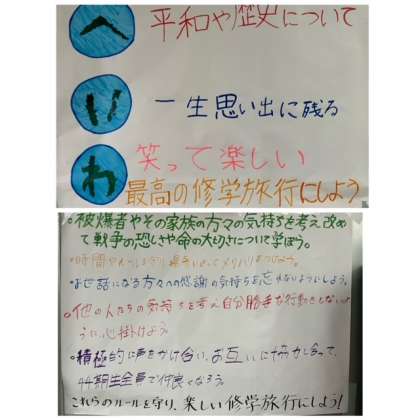 へ 平和や歴史について
い 一生思い出に残る
わ 笑って楽しい
最高の修学旅行にしよう
・被爆者やその家族の方々の気持ちを考え改め
て戦争の恐しさや命の大切さについて学ぼう。
・時間や
メリハリをつけよう。
・お世話になる方々への感謝の気持ちを忘れないようにしよう。
・他の人たちの気持ちを考え自分勝手な行動をしないよ
うに心掛けよう。
・積極的に声をかけ合い、お互いに協力し合って、
44期生全員で仲良くなろう。
これらのルールを守り、楽しい修学旅行にしよう!